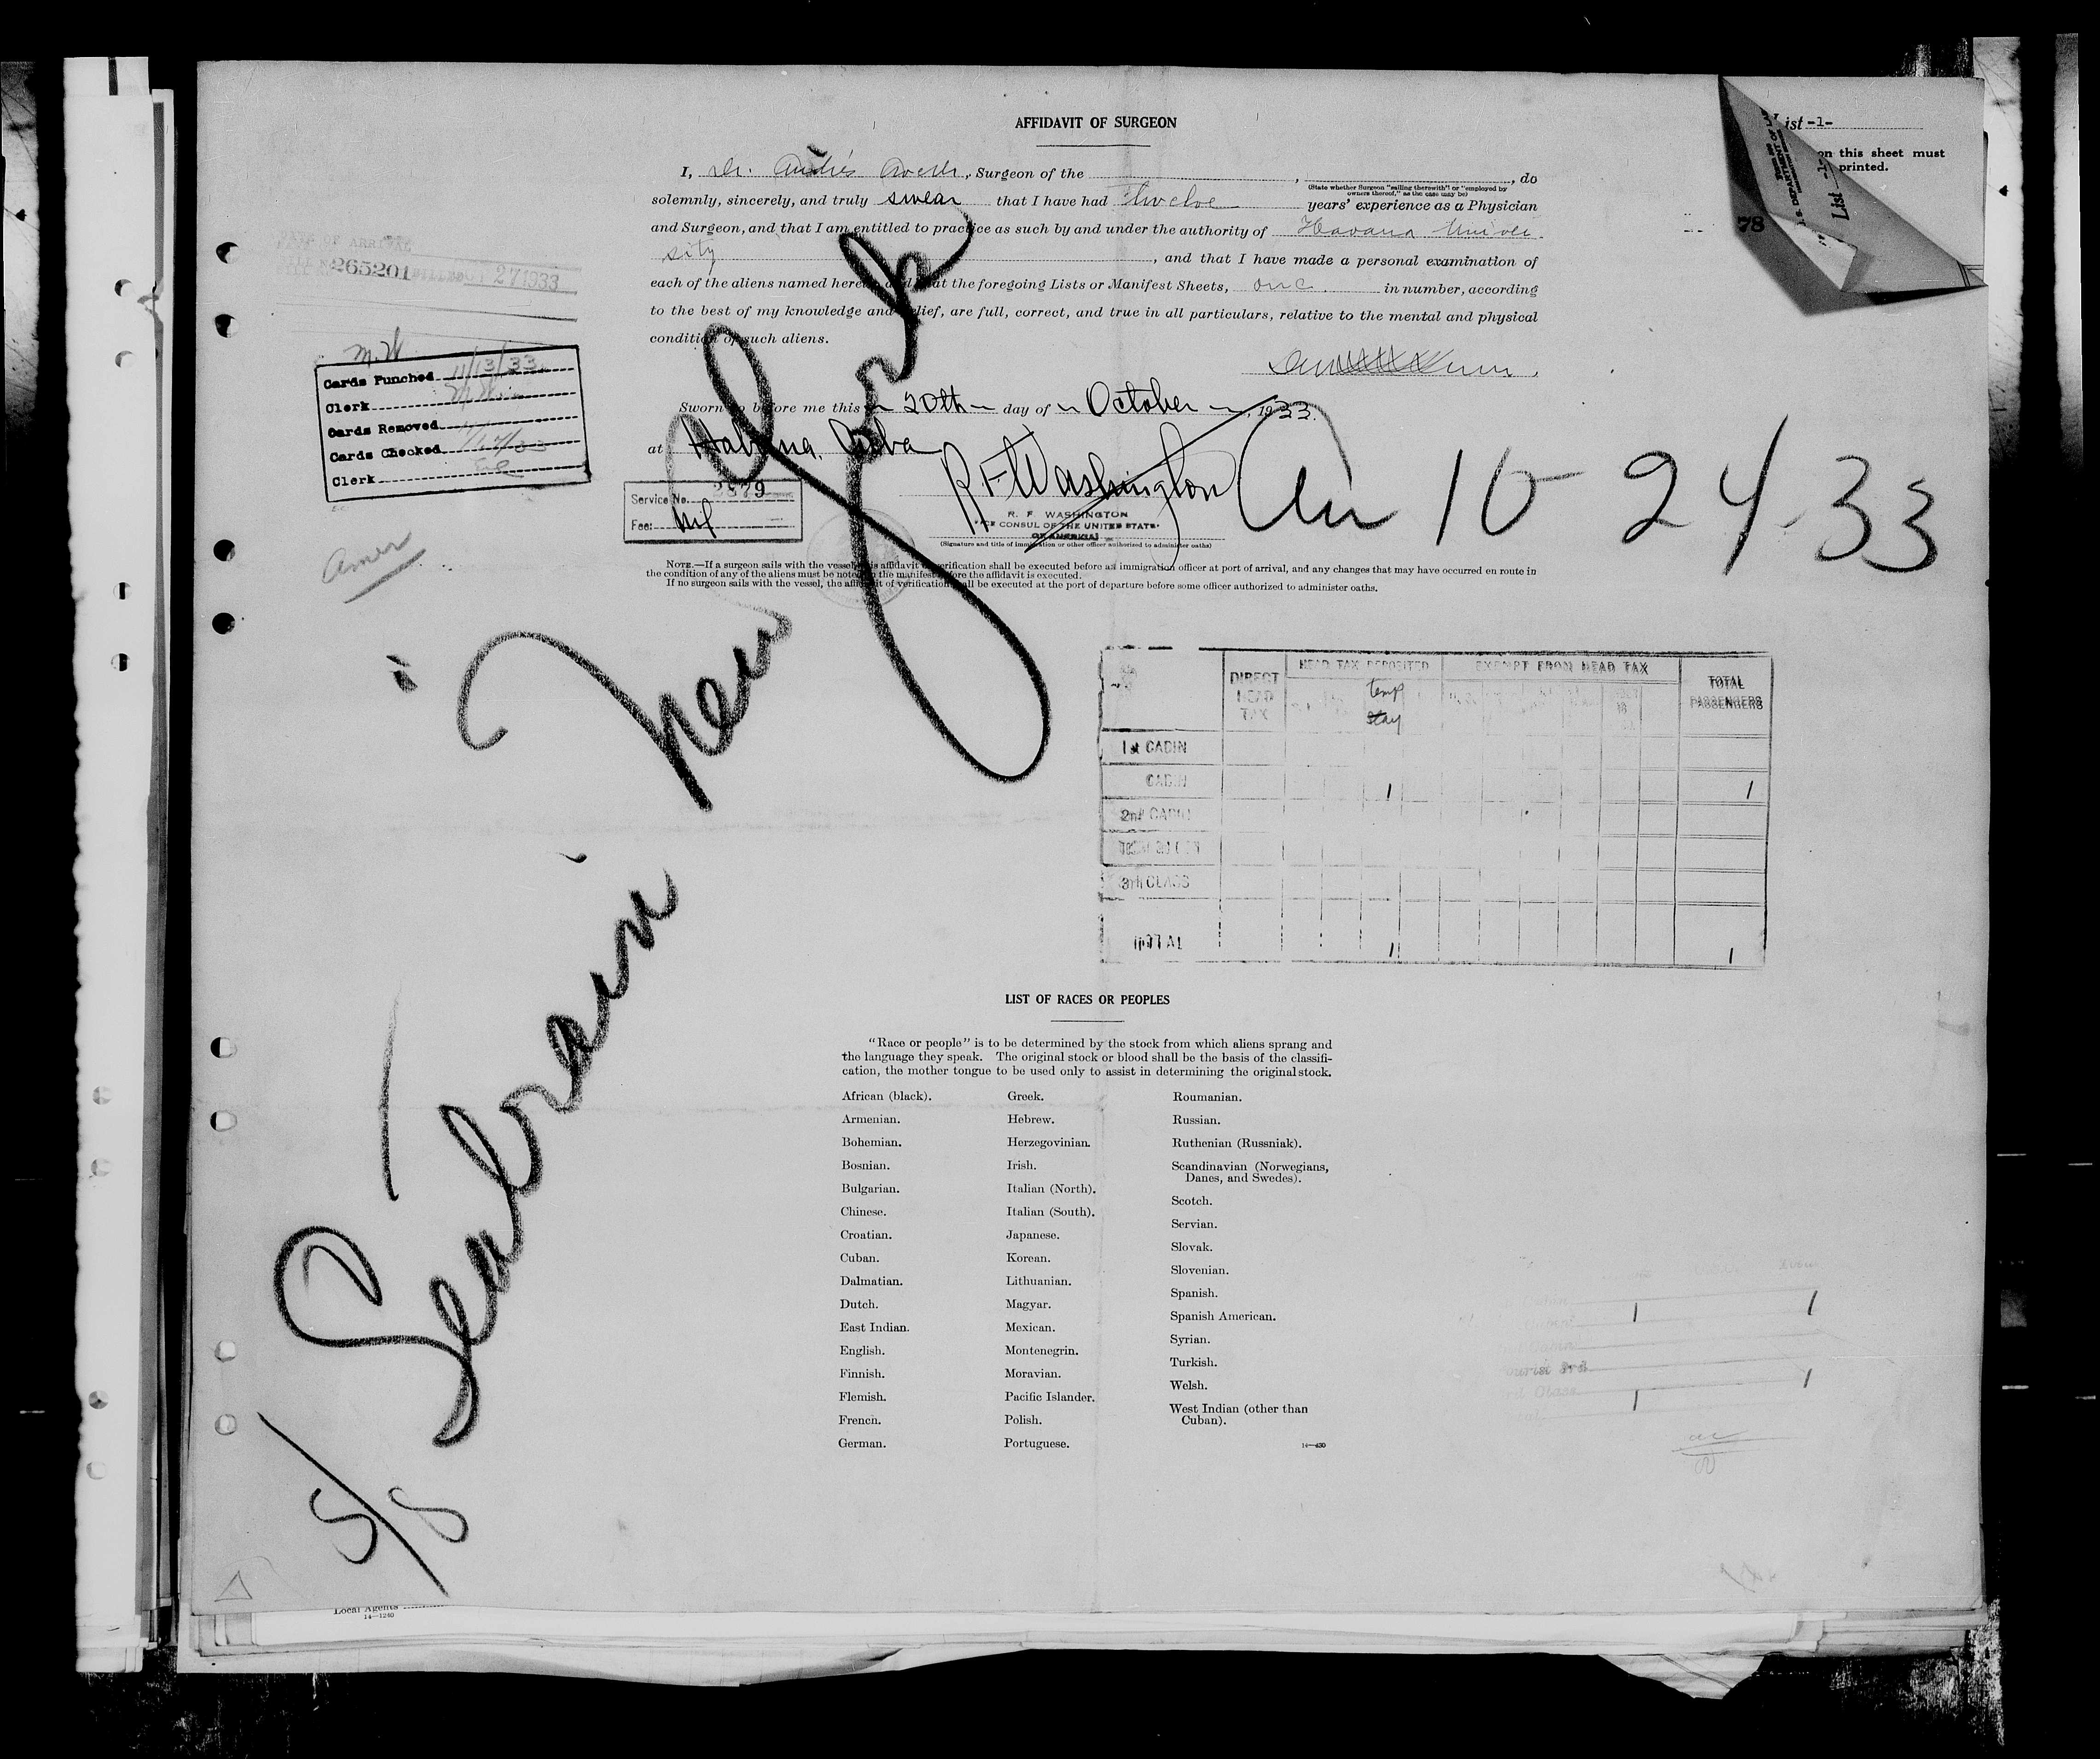 AFFIDAVIT OF SURGEON
List -1-
on this sheet must
printed.
78
I, Dr. Andrés, Surgeon of the , , do
(State whether Surgeon "sailing therewith" or "employed by
owners thereof," as the case may be)
solemnly, sincerely, and truly swear that I have had Twelve years' experience as a Physician
and Surgeon, and that I am entitled to practice as such by and under the authority of Havana Univer
sity , and that I have made a personal examination of
each of the aliens named herein and that the foregoing Lists or Manifest Sheets, one in number, according
to the best of my knowledge and belief, are full, correct, and true in all particulars, relative to the mental and physical
condition of such aliens.
Sworn to before me this 20th day of October, 1933.
at Habana, Cuba
R F Washington
R. F WASHINGTON
VICE CONSUL OF THE UNITED STATES
OF AMERICA
(Signature and title of immigration or other officer authorized to administer oaths)
NOTE.—If a surgeon sails with the vessel, this affidavit of verification shall be executed before an immigration officer at port of arrival, and any changes that may have occurred en route in
the condition of any of the aliens must be noted on the manifest before the affidavit is executed.
If no surgeon sails with the vessel, the affidavit of verification shall be executed at the port of departure before some officer authorized to administer oaths.
DATE OF ARRIVAL
265201 271933
M.W
Cards Punched 11/13/33
Clerk
Cards Removed
Cards Checked
Clerk
Service No. 2879
Fee: Nil
Amer
Arr 10-24-33
Seatrain New York
5/8
DIRECT HEAD TAX
HEAD TAX DEPOSITED
temp stay
EXEMPT FROM HEAD TAX
TOTAL PASSENGERS
1st CABIN
CABIN 1 1
2nd CABIN
3rd CLASS
TOTAL 1 1
LIST OF RACES OR PEOPLES
"Race or people" is to be determined by the stock from which aliens sprang and
the language they speak. The original stock or blood shall be the basis of the classifi-
cation, the mother tongue to be used only to assist in determining the original stock.
African (black).
Armenian.
Bohemian.
Bosnian.
Bulgarian.
Chinese.
Croatian.
Cuban.
Dalmatian.
Dutch.
East Indian.
English.
Finnish.
Flemish.
French.
German.
Greek.
Hebrew.
Herzegovinian.
Irish.
Italian (North).
Italian (South).
Japanese.
Korean.
Lithuanian.
Magyar.
Mexican.
Montenegrin.
Moravian.
Pacific Islander.
Polish.
Portuguese.
Roumanian.
Russian.
Ruthenian (Russniak).
Scandinavian (Norwegians,
Danes, and Swedes).
Scotch.
Servian.
Slovak.
Slovenian.
Spanish.
Spanish American.
Syrian.
Turkish.
Welsh.
West Indian (other than
Cuban).
14—430
1 1
1 1
Local Agents
14—1240